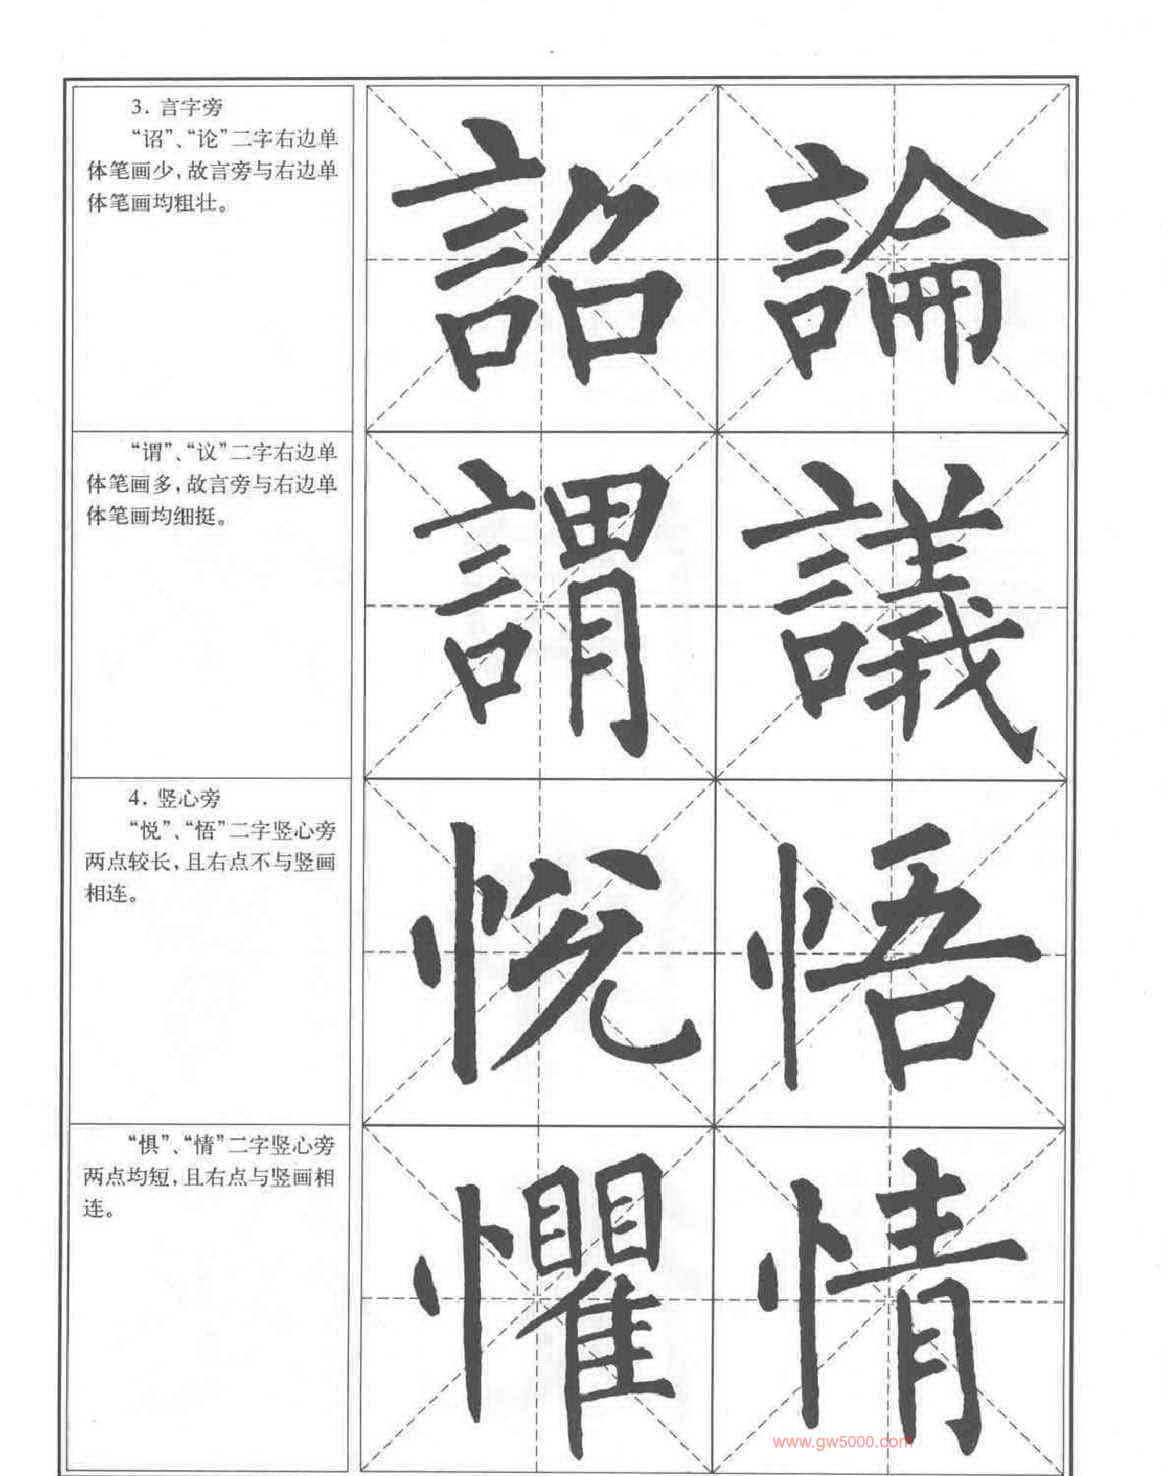 3. 言字旁
“诏”、“论”二字右边单
体笔画少，故言旁与右边单
体笔画均粗壮。
詔 論
“谓”、“议”二字右边单
体笔画多，故言旁与右边单
体笔画均细挺。
謂 議
4. 竖心旁
“悦”、“悟”二字竖心旁
两点较长，且右点不与竖画
相连。
悅 悟
“惧”、“情”二字竖心旁
两点均短，且右点与竖画相
连。
懼 情
www.gw5000.com